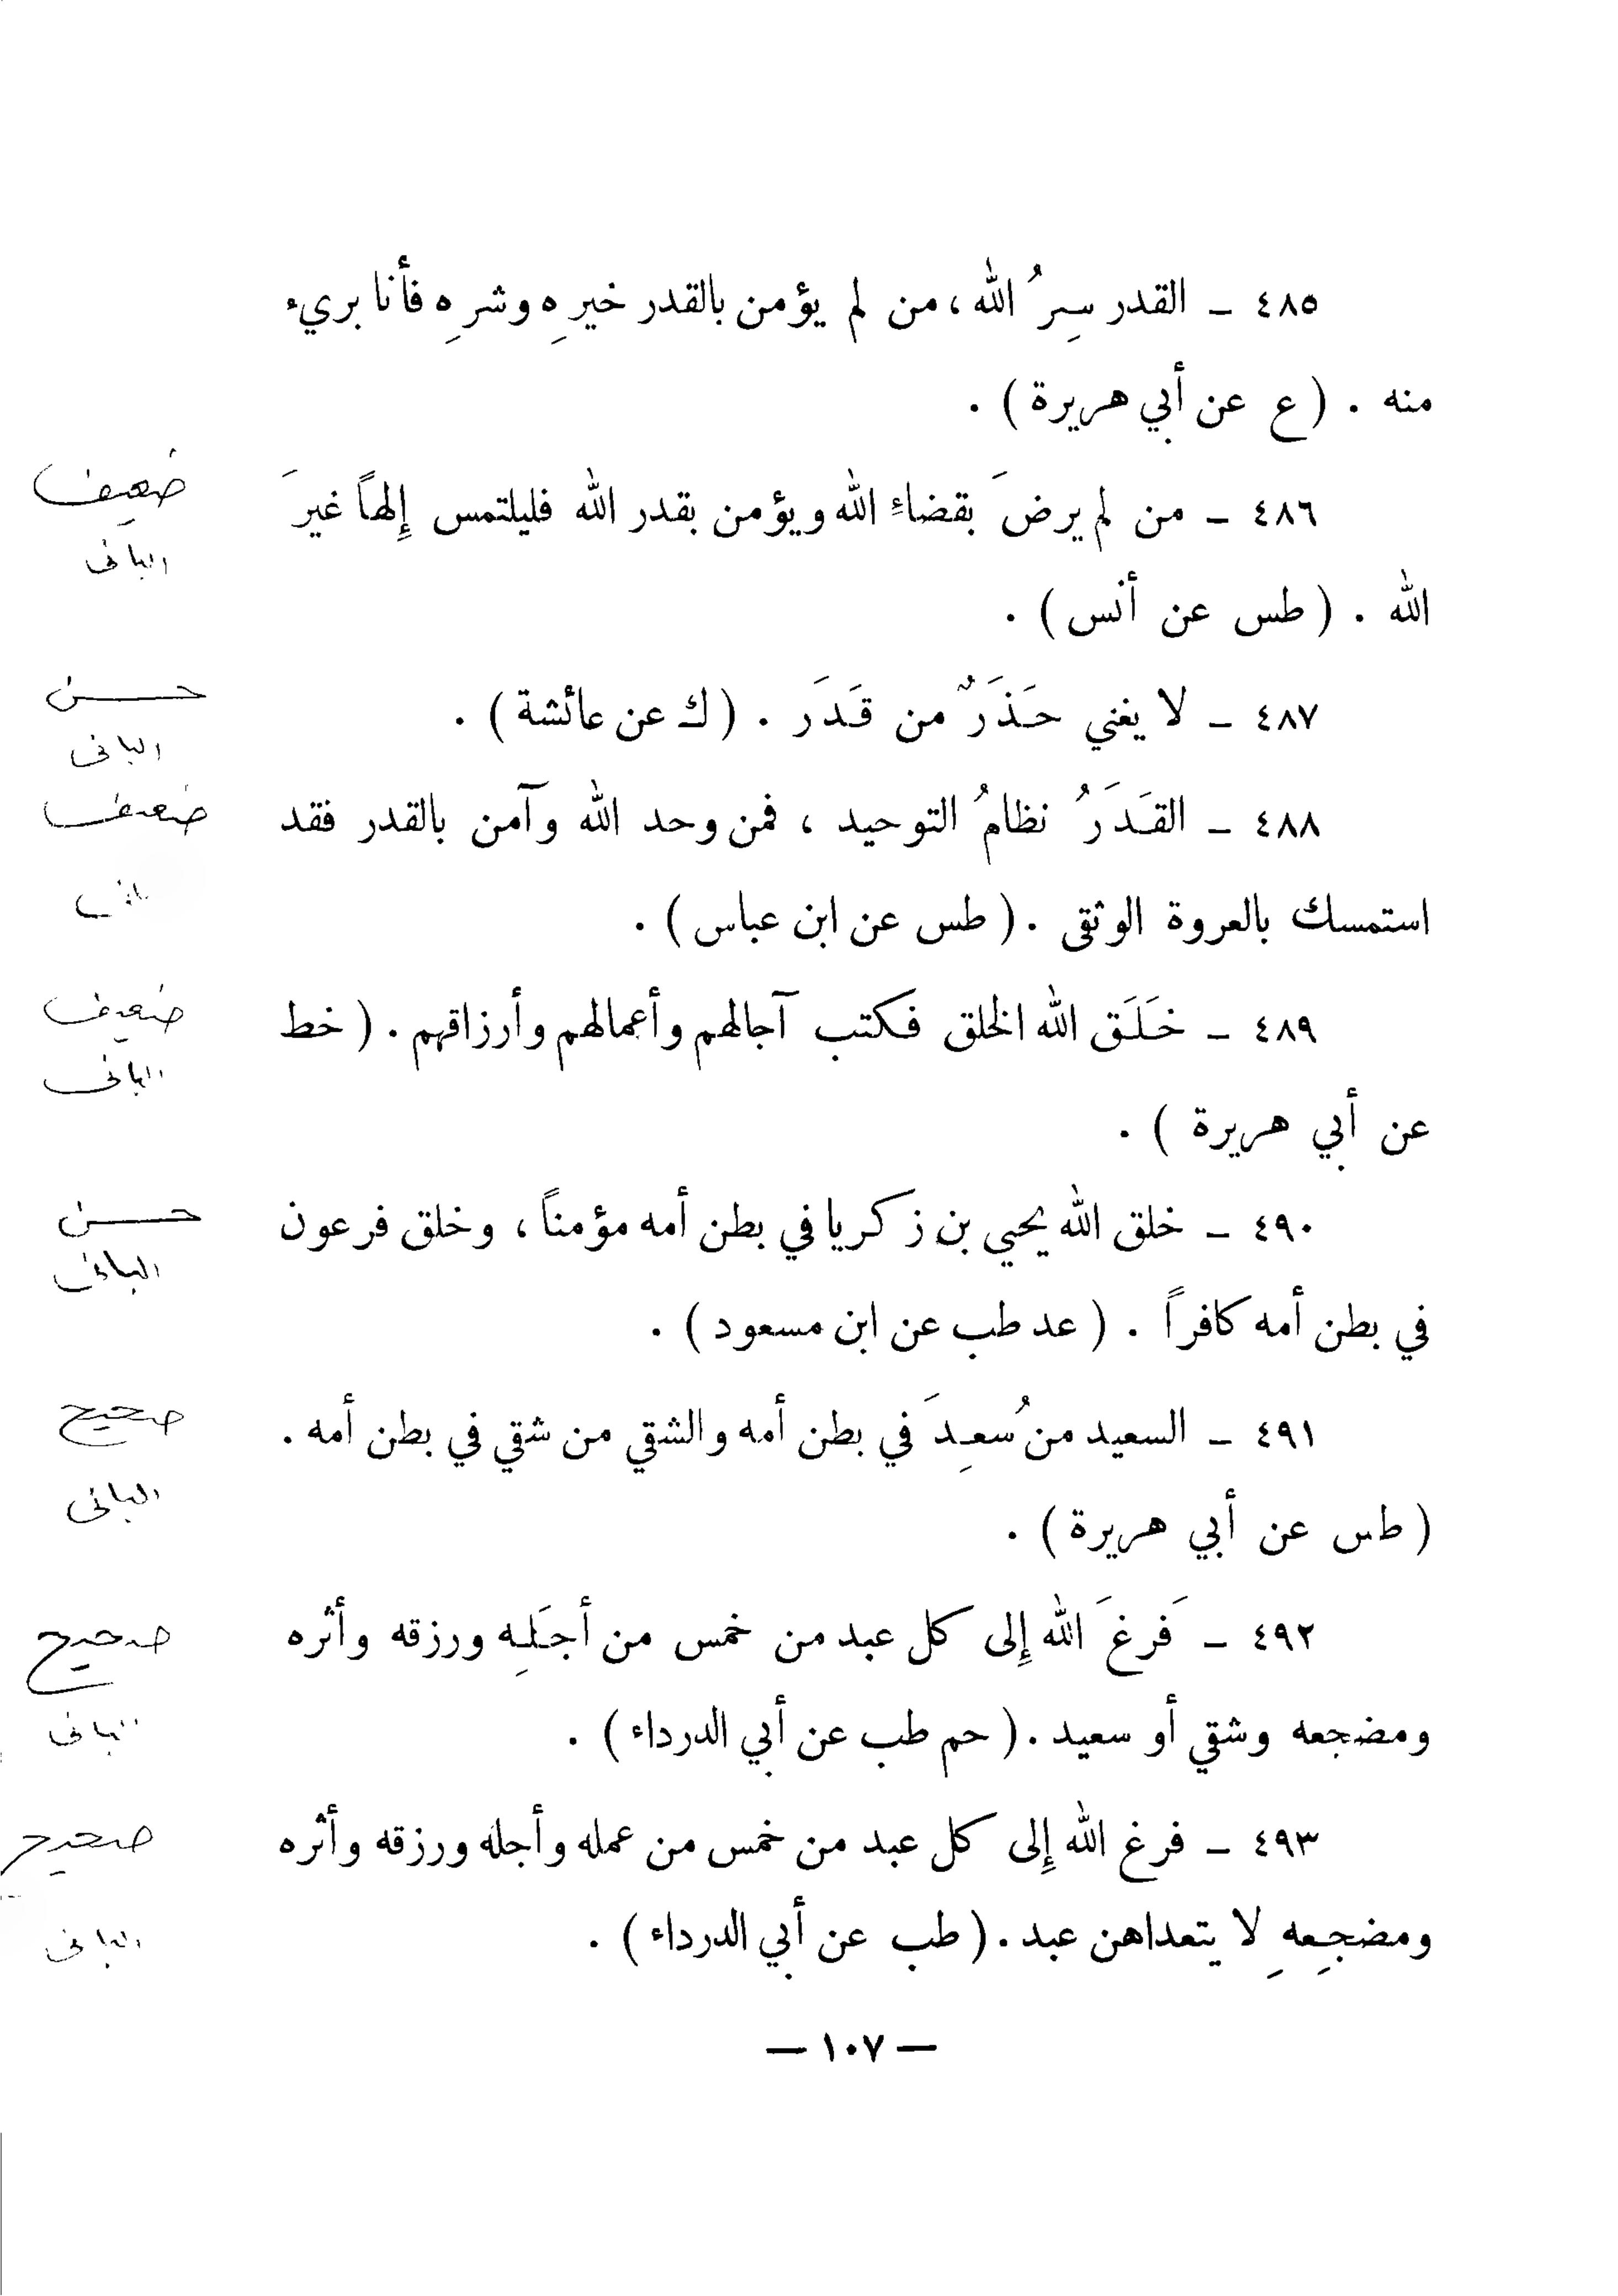 ٤٨٥ ـ القدر سِرُ الله، من لم يؤمن بالقدر خيرِه وشرِه فأنا بريء
منه . ( ع عن أبي هريرة ) .
ضعيف
٤٨٦ ـ من لم يرضَ بقضاءِ الله ويؤمن بقدر الله فليلتمس إِلهاً غيرَ
البانى
الله . ( طس عن أنس ) .
حسن
٤٨٧ ـ لا يغني حَذَرٌ من قَدَر . ( ك عن عائشة ) .
البانى
ضعيف
٤٨٨ ـ القَدَرُ نظامُ التوحيد ، فمن وحد الله وآمن بالقدر فقد
استمسك بالعروة الوثقى . ( طس عن ابن عباس ) .
ضعيف
٤٨٩ ـ خَلَق الله الخلق فكتب آجالهم وأعمالهم وأرزاقهم . ( خط
البانى
عن أبي هريرة ) .
حسن
٤٩٠ ـ خلق الله يحيي بن زكريا في بطن أمه مؤمناً ، وخلق فرعون
البانى
في بطن أمه كافراً . ( عد طب عن ابن مسعود ) .
صحيح
٤٩١ ـ السعيد من سُعِدَ في بطن أمه والشقي من شقي في بطن أمه .
البانى
( طس عن أبي هريرة ) .
صحيح
٤٩٢ ـ فَرغَ الله إِلى كل عبد من خمس من أجَلِه ورزقه وأثره
البانى
ومضجعه وشقي أو سعيد . ( حم طب عن أبي الدرداء ) .
صحيح
٤٩٣ ـ فرغ الله إِلى كل عبد من خمس من عمله وأجله ورزقه وأثره
البانى
ومضجِعهِ لا يتعداهن عبد . ( طب عن أبي الدرداء ) .
— ١٠٧ —